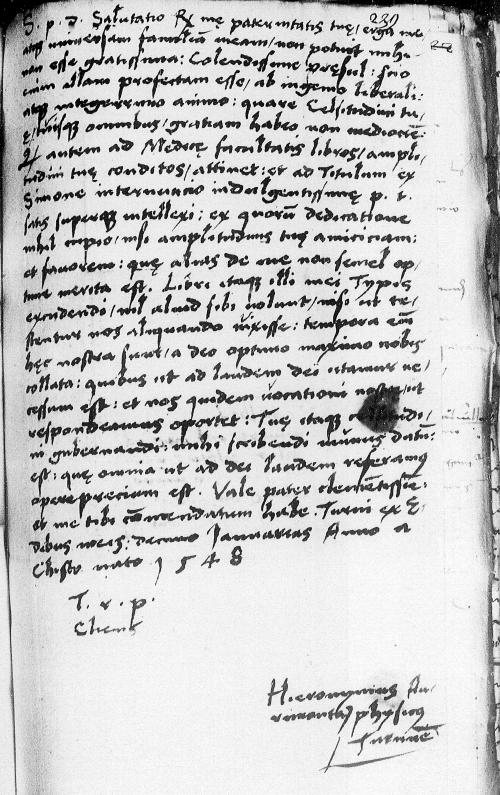 239
S. p. d. Salutatio Rx mę paternitatis tuę, erga me
atq universam familiã meam, non potuit mihi
non esse gratissima: Colendissime pręsul: scio
enim illam profectam esse, ab ingenio liberali:
atq integerrimo animo: quare Celsitudini tu,
ę, cuiusq omnibus, gratiam habeo non mediocrẽ:
Q, autem ad Medicę facultatis libros, ampli,
tudini tuę conditos, attinet: et ad Titulum ex
Simone internuncio indulgentissimę p. t.
satis superq intellexi: ex quorũ dedicatione
nihil cupio, nisi amplitudinis tuę amiciciam:
et favorem: quę alias de me non semel op,
time merita est. Libri itaq illi mei Typis
excudendi, nil aliud sibi volunt, nisi ut te,
stentur nos aliquando vixisse: tempora eni
hęc nostra sunt, a deo optimo maximo nobis
collata: quibus ut ad laudem dei utamur ne,
cessum est: et nos quidem vocationi nostrę, ut
respondeamus oportet: Tuę itaq
in gubernandi: mihi scribendi munus datũ:
est: quę omnia ut ad dei laudem referamq
opereprecium est. Vale pater clementissie:
et me tibi cõmendatum habe. Turrii ex Ę,
dibus meis: decimo Januarias Anno a
Christo nato 1548
T. r. p.
Cliens
Hieronymius
physicq